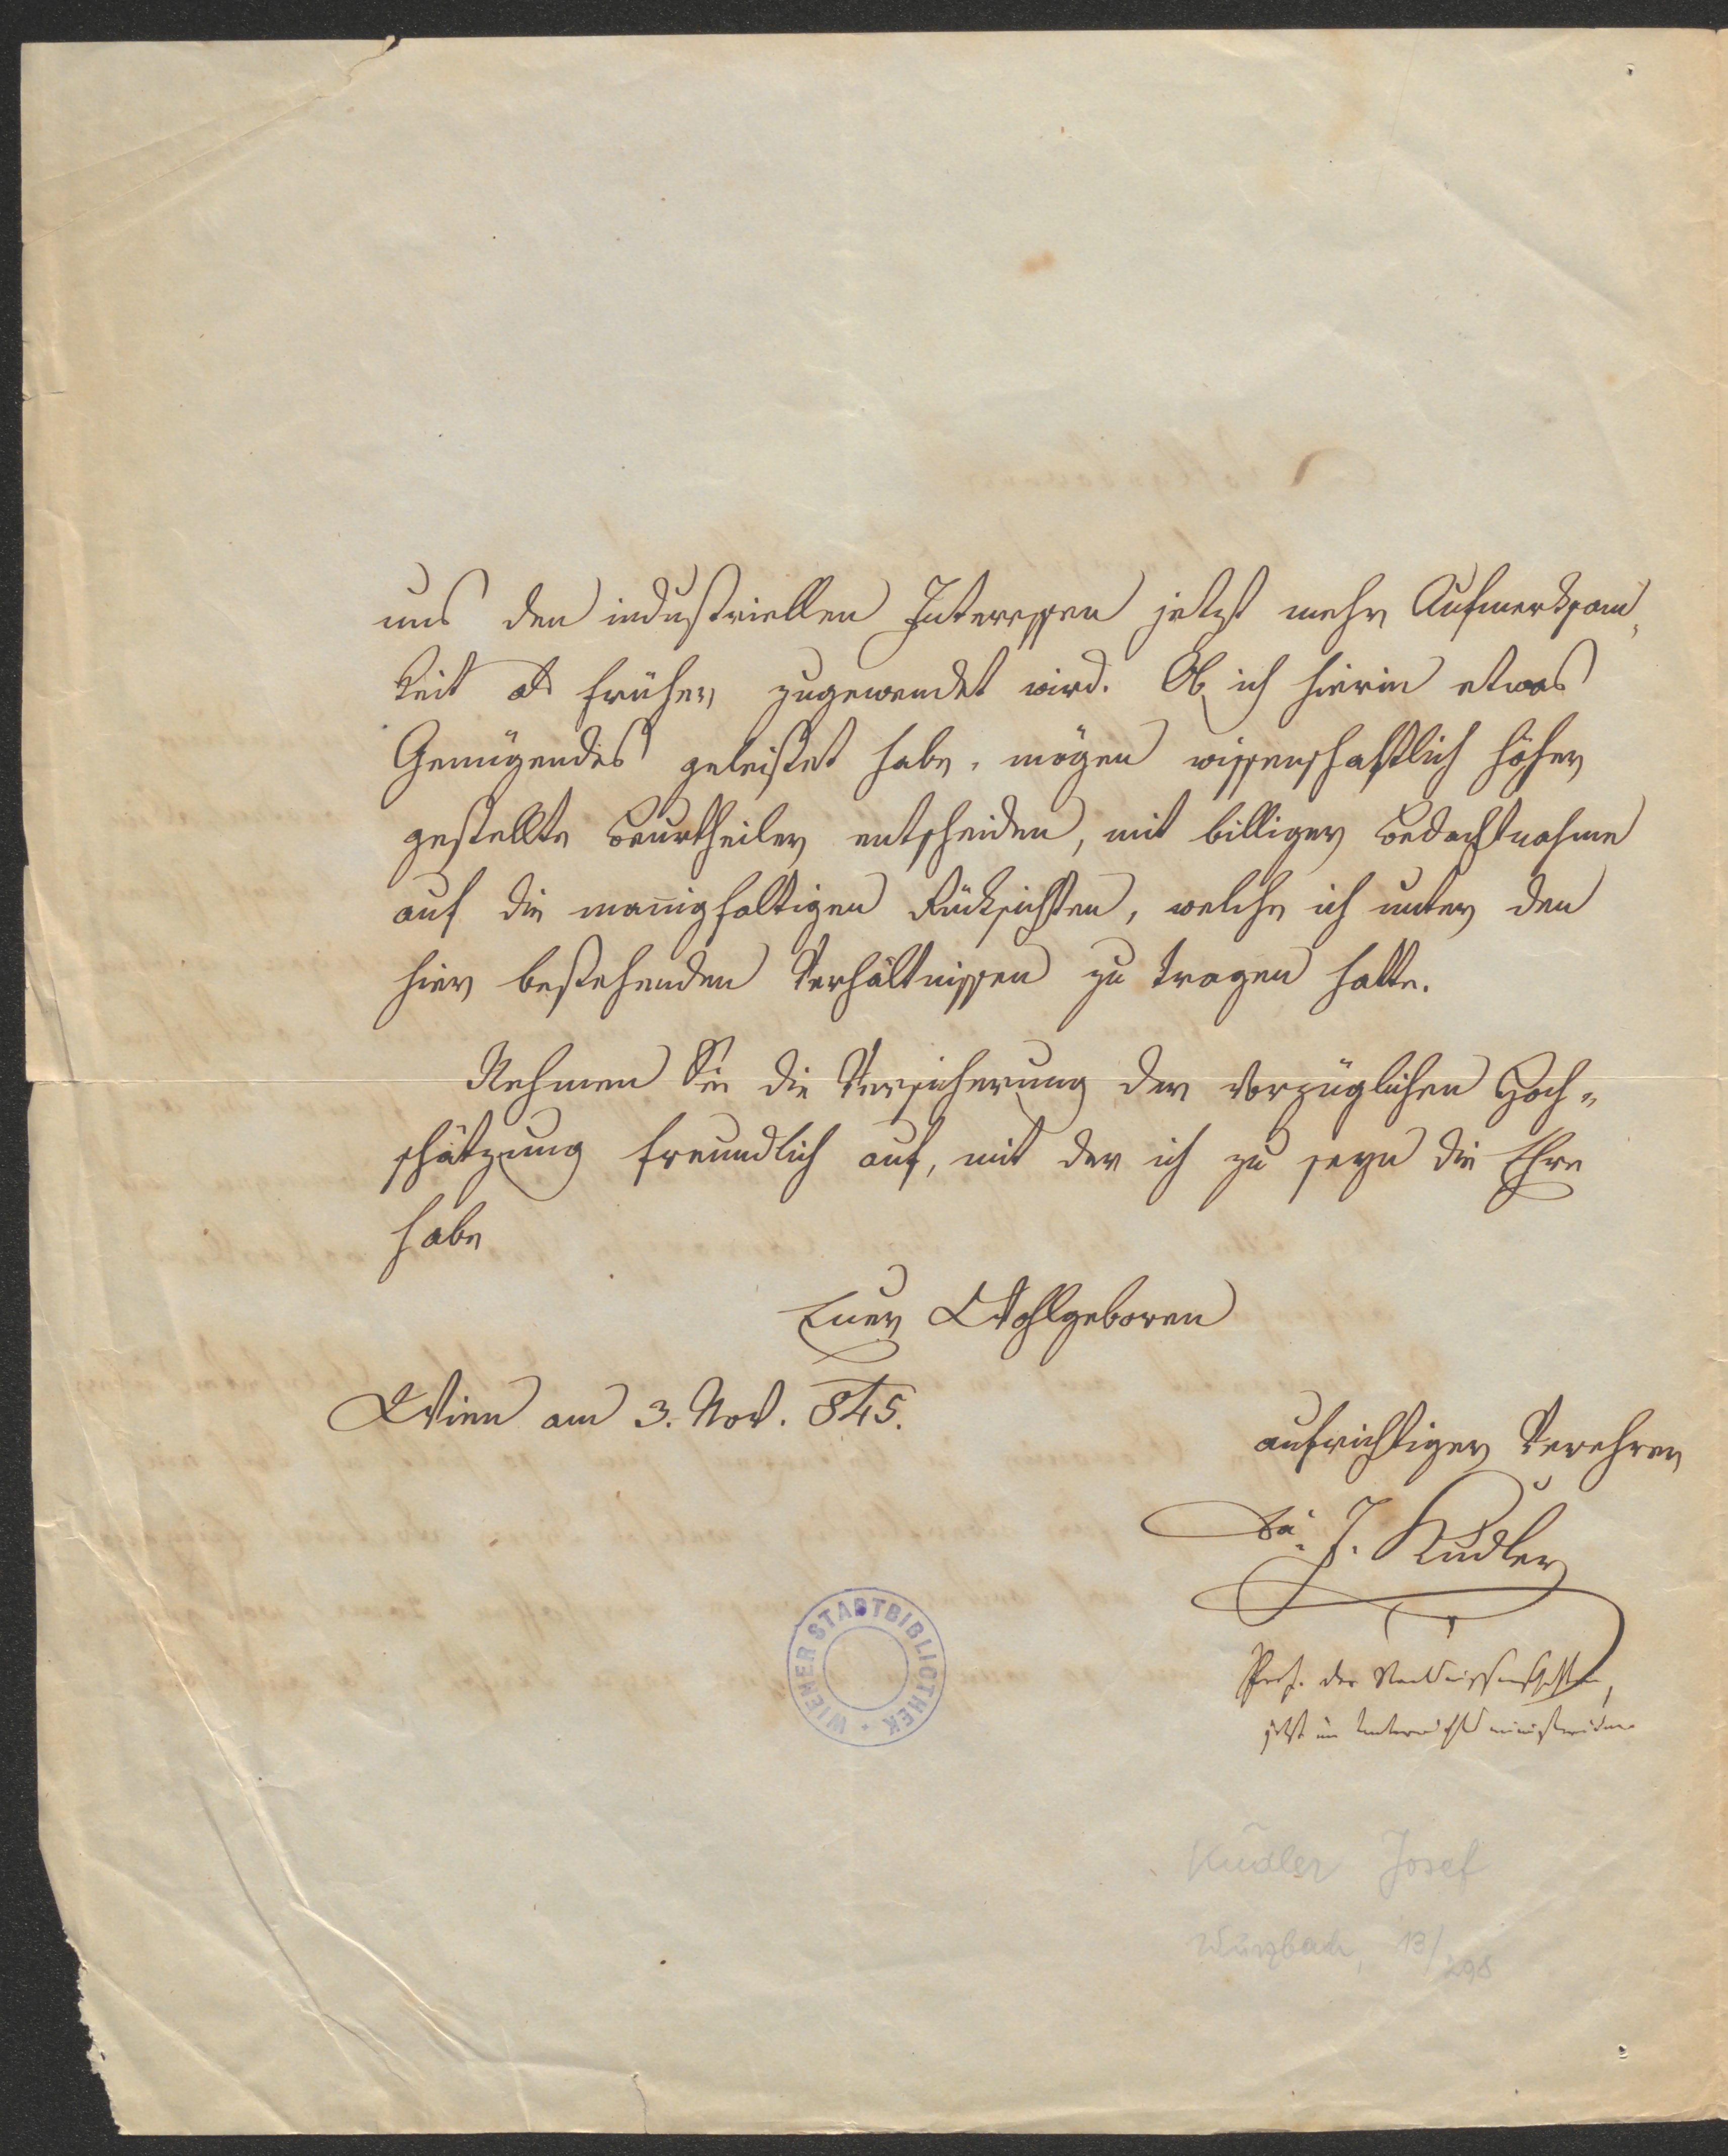 uns den industriellen Interessen jetzt mehr Aufmerksam-
keit als früher zugewendet wird. Ob ich hierin etwas
Genügendes geleistet habe, mögen wissenschaftlich höher
gestellte Beurtheiler entscheiden, mit billiger Bedachtnahme
auf die mannigfaltigen Rücksichten, welche ich unter den
hier bestehenden Verhältnissen zu tragen hatte.
Nehmen Sie die Versicherung der vorzüglichen Hoch-
schätzung freundlich auf, mit der ich zu seyn die Ehre
habe
Euer Wohlgeboren
Wien am 3. Nov. 845.
aufrichtiger Verehrer
J. Kudler
Prof. der
jetzt im Unterrichtsministerium
WIENER STADTBIBLIOTHEK
Kudler Josef
Wurzbach, 13/298